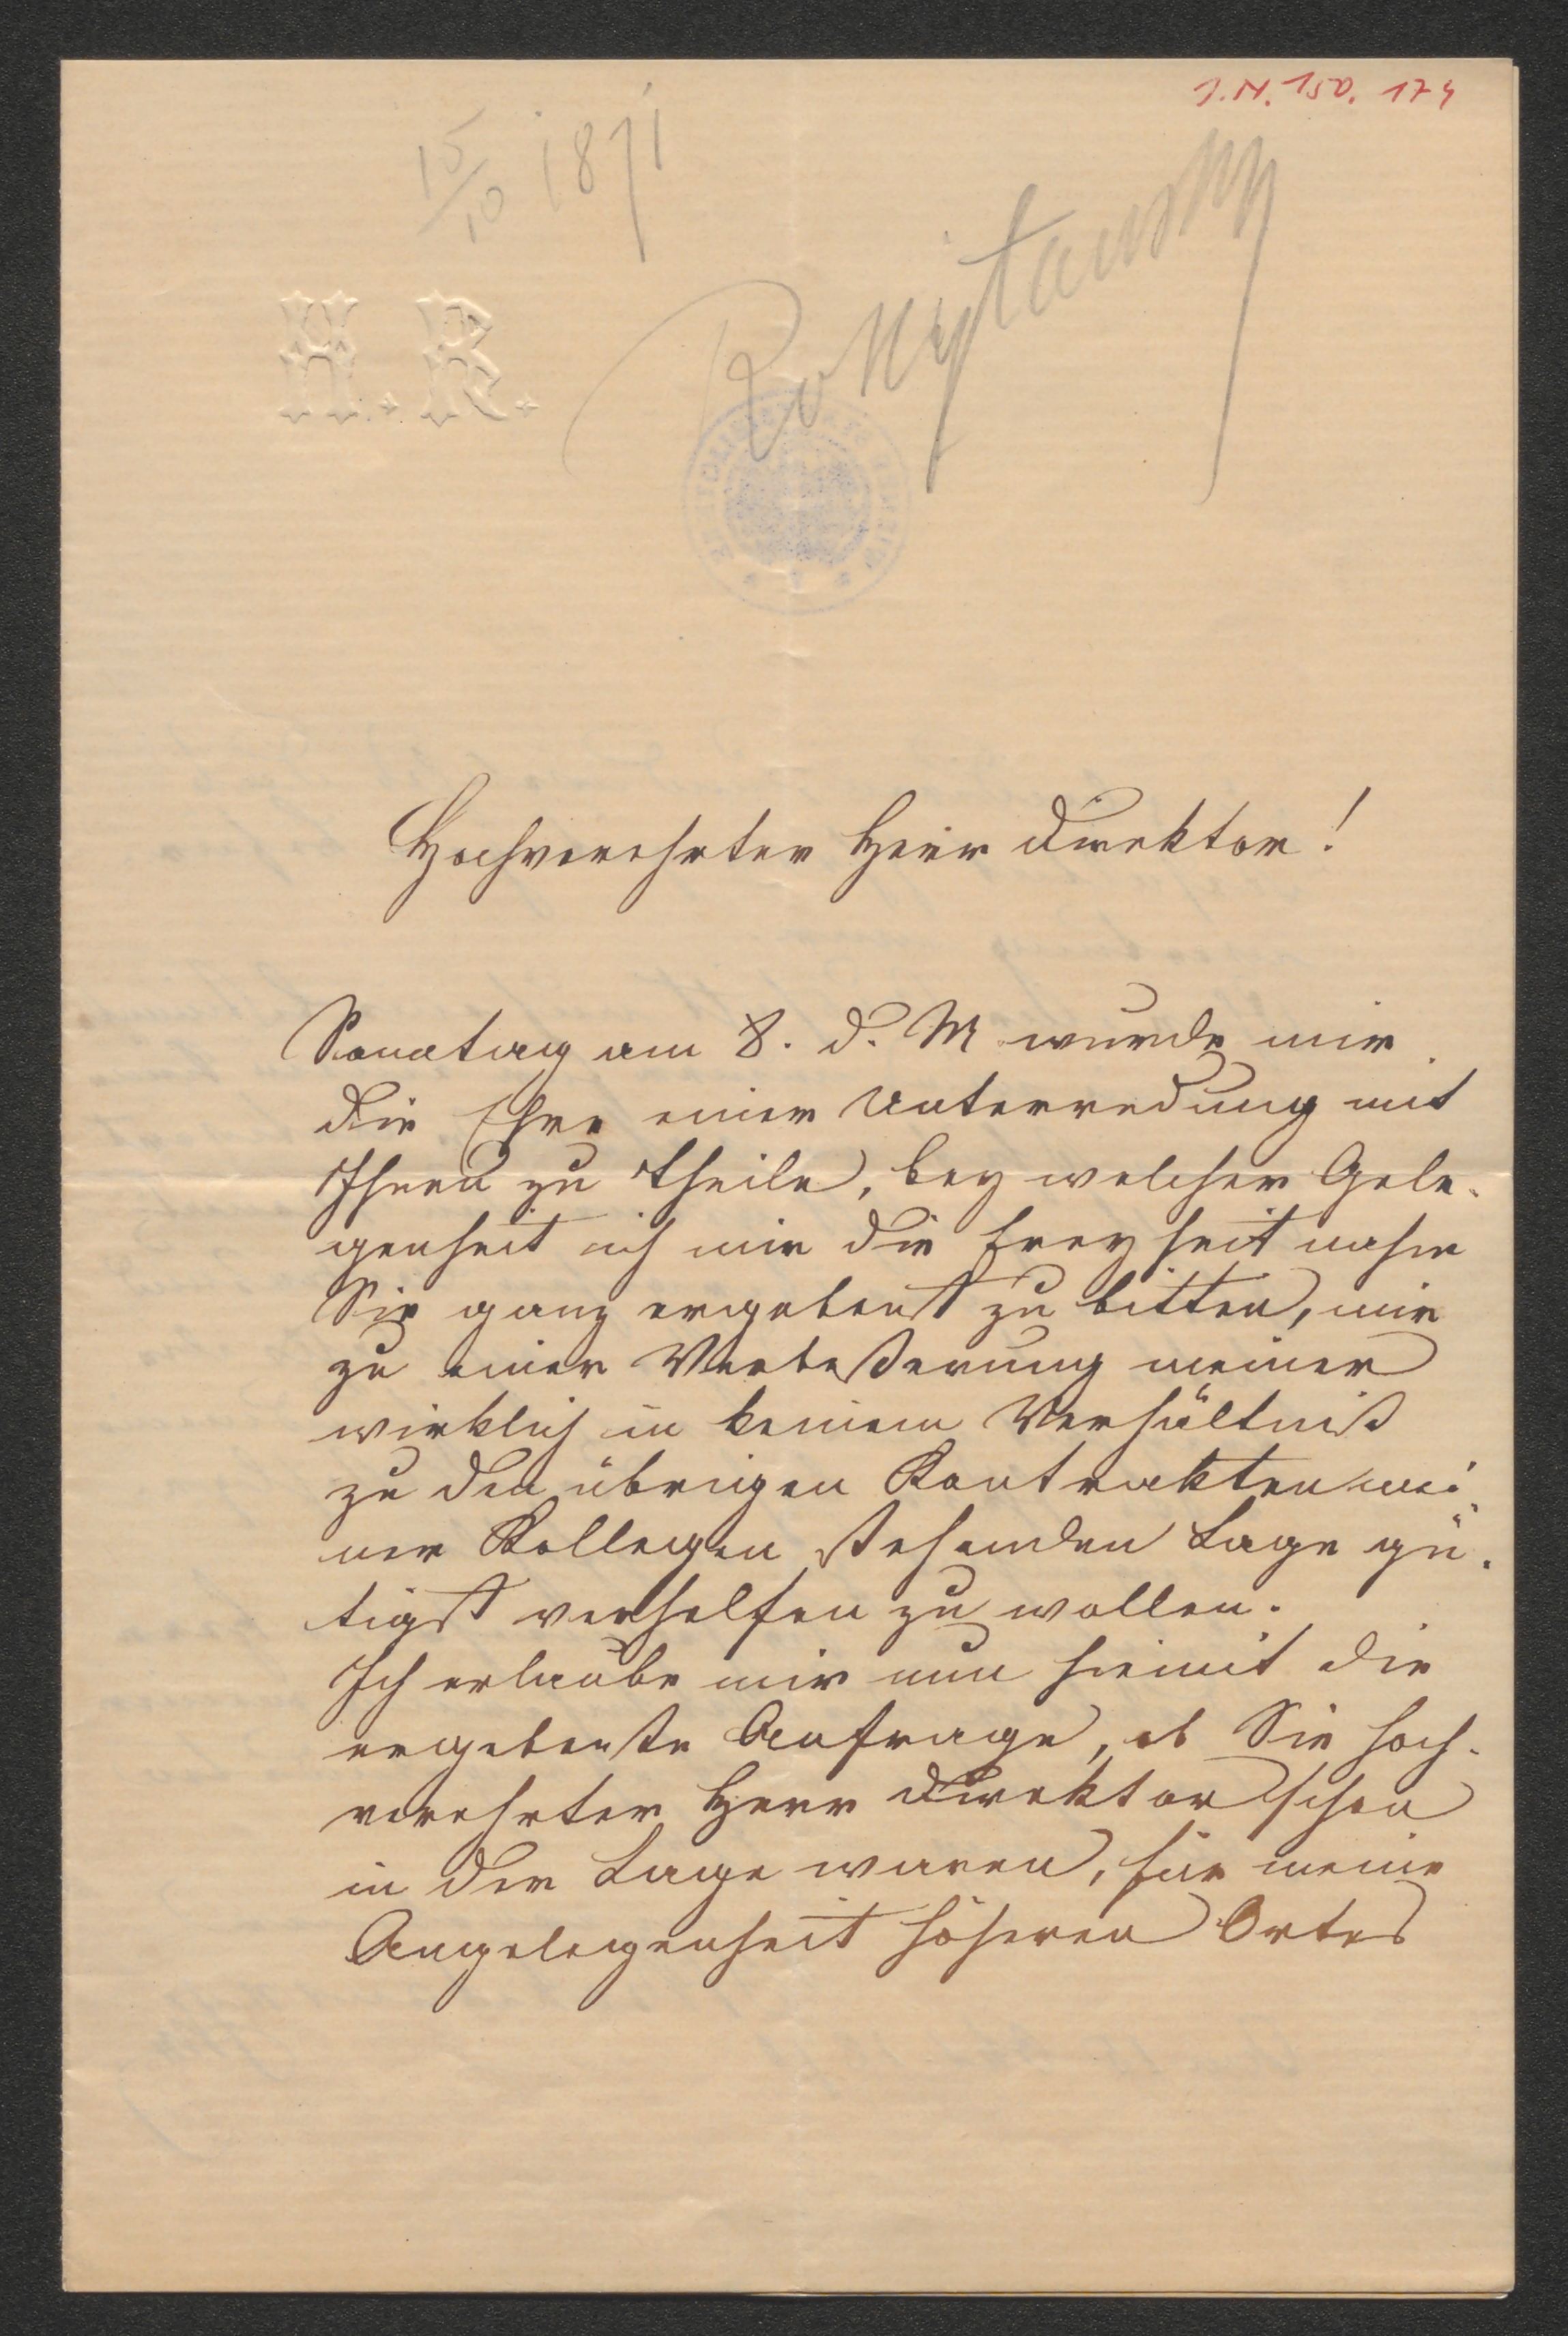 J.N. 150.174
15/10 1871
Rokitansky
H. R.
Hochverehrter Herr Direktor!
Sonntag am 8. d. M. wurde mir
die Ehre einer Unterredung mit
Ihnen zu Theile, bey welcher Gele-
genheit ich mir die Freyheit nahm
Sie ganz ergebenst zu bitten, mir
zu einer Verbeßerung meiner
wirklich in keinem Verhältniß
zu den übrigen Kontrakten mei-
ner Kollegen stehenden Lage gü-
tigst verhelfen zu wollen.
Ich erlaube mir nun hiemit die
ergebenste Anfrage, ob Sie hoch-
verehrter Herr Direktor schon
in der Lage waren, für meine
Angelegenheit höheren Ortes